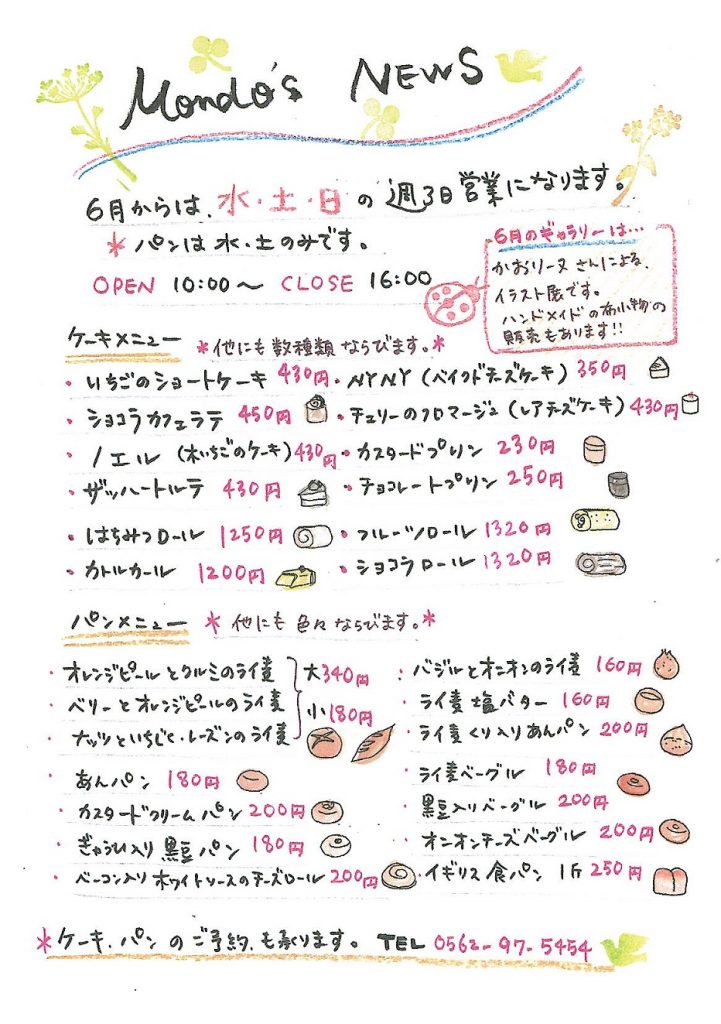 Mondo's NEWS
6月からは、水・土・日の週3日営業になります。
*パンは水・土のみです。
OPEN 10:00〜 CLOSE 16:00
6月のギャラリーは…
かおリーヌさんによる、
イラスト展です。
ハンドメイドの布小物の
販売もあります!!
ケーキメニュー *他にも数種類ならびます。*
・いちごのショートケーキ 430円 ・NYNY(ベイクドチーズケーキ) 350円
・ショコラカフェラテ 450円 ・チェリーのフロマージュ(レアチーズケーキ) 430円
・ノエル(木いちごのケーキ) 430円 ・カスタードプリン 230円
・ザッハートルテ 430円 ・チョコレートプリン 250円
・はちみつロール 1250円 ・フルーツロール 1320円
・カトルカール 1200円 ・ショコラロール 1320円
パンメニュー *他にも色々ならびます。*
・オレンジピールとクルミのライ麦 大340円 ・バジルとオニオンのライ麦 160円
・ベリーとオレンジピールのライ麦 小180円 ・ライ麦塩バター 160円
・ナッツといちじく・レーズンのライ麦 ・ライ麦くり入りあんパン 200円
・あんパン 180円 ・ライ麦ベーグル 180円
・カスタードクリームパン 200円 ・黒豆入りベーグル 200円
・ぎゅうひ入り黒豆パン 180円 ・オニオンチーズベーグル 200円
・ベーコン入りホワイトソースのチーズロール 200円 ・イギリス食パン 1斤 250円
*ケーキ、パンのご予約も承ります。 TEL 0562-97-5454